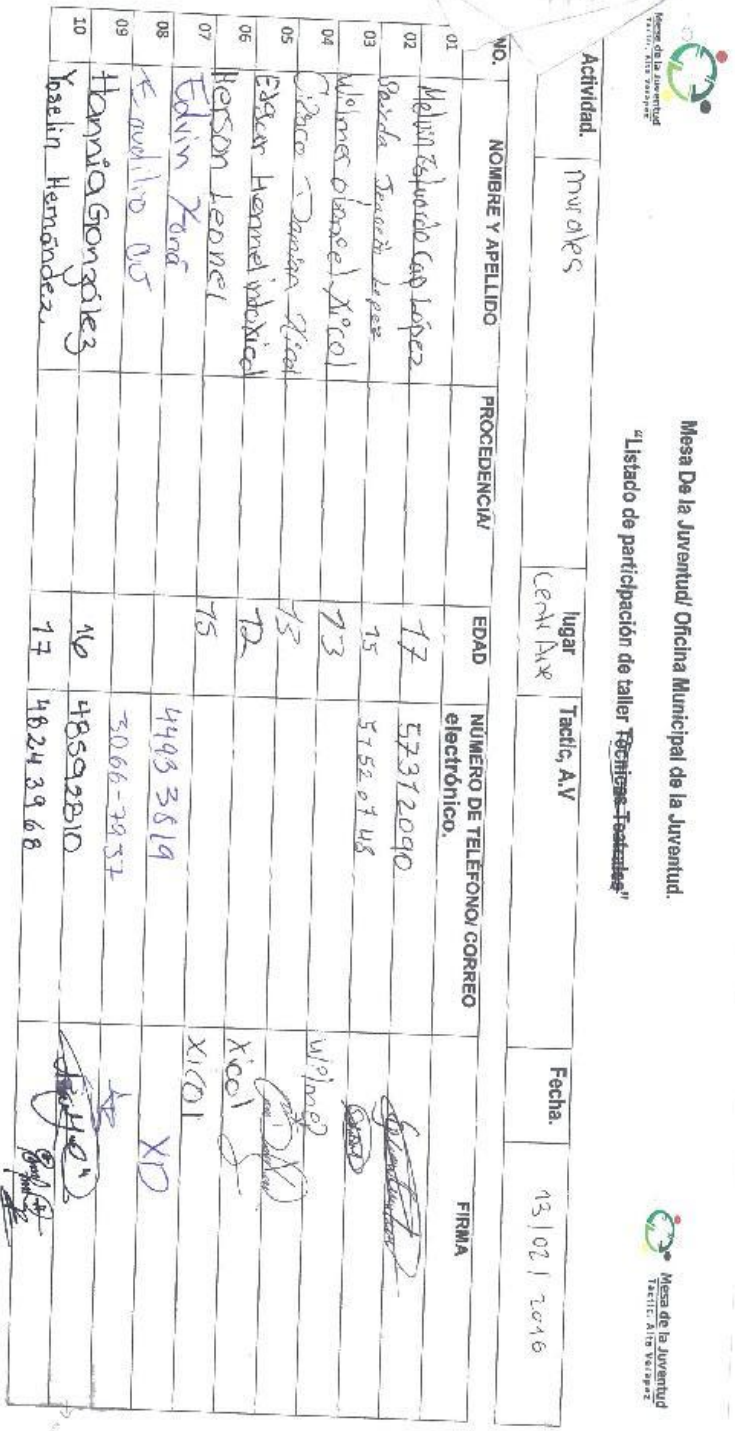 Mesa de la Juventud
Tactic, Alta Verapaz
Mesa de la Juventud
Tactic, Alta Verapaz
Mesa De la Juventud/ Oficina Municipal de la Juventud.
“Listado de participación de taller Técnicas Teatrales”
Actividad. murales lugar Tactic, A.V Fecha. 13/02/2016
NO. NOMBRE Y APELLIDO PROCEDENCIA/ EDAD NÚMERO DE TELÉFONO/ CORREO electrónico. FIRMA
01 Melvin López 17 57312090
02 Lopez 15 57520748
03 Wilmer Xicol 13 Wilmer
04 Damian Xicol 13
05 12 Xicol
06 Herson Leonel 15 Xicol
07 Edvin 4493 3819 XD
08 3066-7937
09 Hannia González 16 48592810
10 Yoselin Hernández. 17 48243968